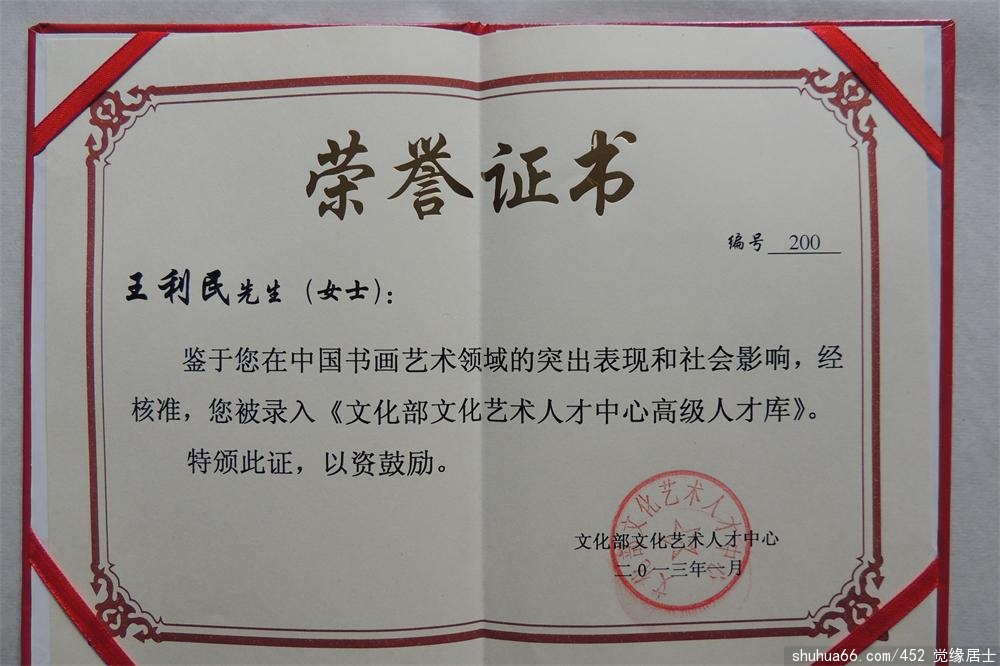 荣誉证书
编号 200
王利民先生（女士）：
鉴于您在中国书画艺术领域的突出表现和社会影响，经
核准，您被录入《文化部文化艺术人才中心高级人才库》。
特颁此证，以资鼓励。
文化部文化艺术人才中心
文化部文化艺术人才中心
二0一三年一月
shuhua66.com/452 觉缘居士